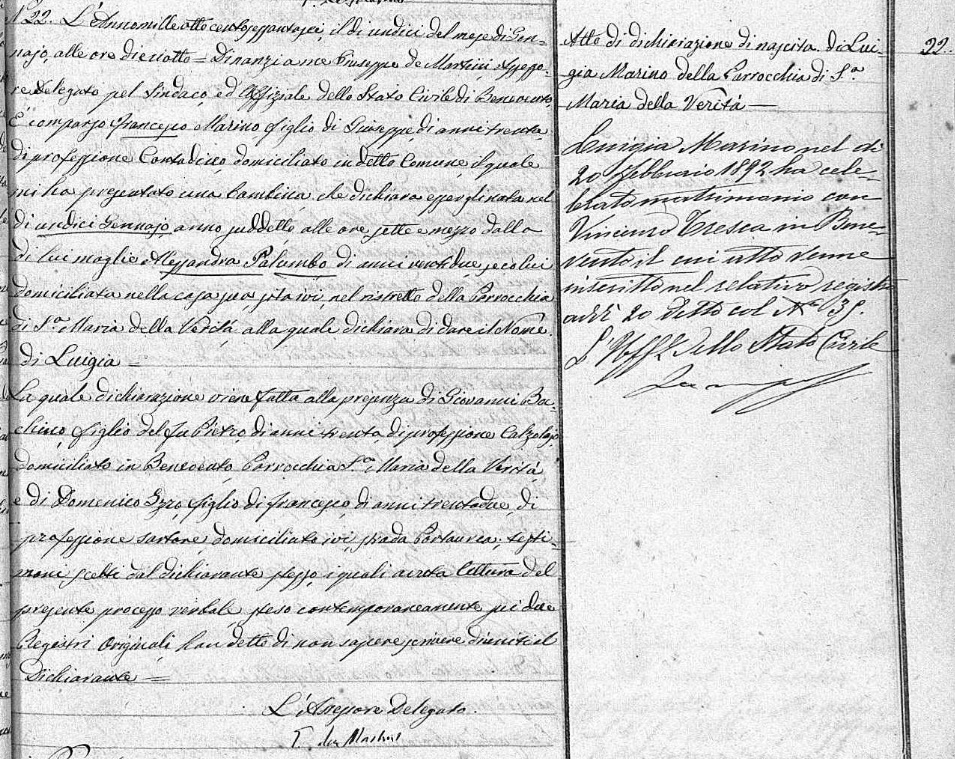 N° 22. L'Anno mille ottocentosessantasei, il dì undici del mese di Gen-
najo, alle ore dieciotto = Dinanzi a me Giuseppe de Martini, Assesso-
re Delegato pel Sindaco, ed Offiziale dello Stato Civile di Benevento,
È comparso Francesco Marino figlio di Giuseppe, di anni trenta
di professione Contadino, domiciliato in detto Comune, il quale
mi ha presentato una bambina, che dichiara esser gli nata nel
dì undici Gennajo, anno suddetto alle ore sette e mezzo dalla
di lui moglie Alessandra Palombo di anni ventidue, seco lui
domiciliata nella casa sua sita ivi nel ristretto della Parrocchia
di S.a Maria della Verità alla quale dichiara di dare il Nome
di Luigia =
La quale dichiarazione viene fatta alla presenza di Giovanni
figlio del fu Pietro di anni trenta di professione Calzolajo
domiciliato in Benevento, Parrocchia S.a Maria della Verità,
e di Domenico Izzo, figlio di Francesco, di anni trentadue, di
professione sartore, domiciliato ivi, strada Portaurea; testi-
moni scelti dal dichiarante stesso, i quali avuta lettura del
presente processo verbale, steso contemporaneamente su i due
Registri Originali, han detto di non sapere scrivere di uniti il
Dichiarante =
L'Assessore Delegato
Atto di dichiarazione di nascita di Lui-
gia Marino della Parrocchia di S.a
Maria della Verità —
22.
Luigia Marino nel dì
20 Febbraio 1892 ha cele-
brato matrimonio con
Vincenzo Tresca in Bene-
vento, il cui atto venne
inscritto nel relativo registro
addì 20 detto col N° 35.
L'Uffiz dello Stato Civile